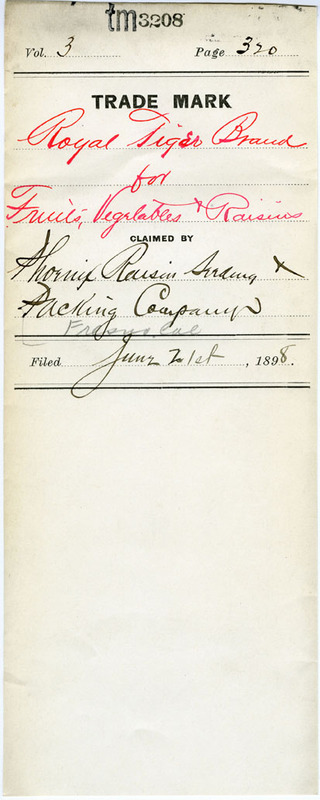 tm3208
Vol. 3 Page 320
TRADE MARK
Royal Tiger Brand
for
Fruits, Vegetables & Raisins
CLAIMED BY
Phoenix Raisin Seeding &
Packing Company
Fresno Cal
Filed June 21st, 1898.